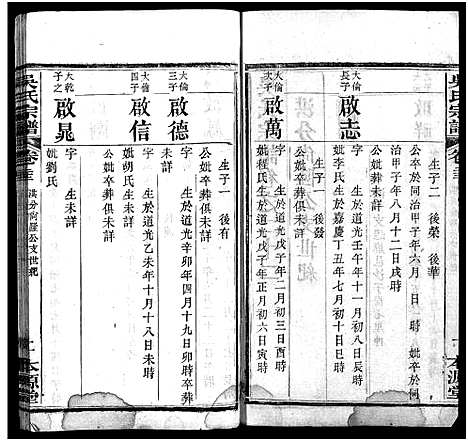 吳氏宗譜
卷三
本源堂
公卒於同治甲子年六月 日 時 妣卒於同
治甲子年八月十二日戌時
生子二 後榮 後華
大倫長子
啟志
字 生於道光壬午年十一月初八辰時
妣李氏生於嘉慶丁丑年七月初十日巳時
公妣卒葬俱未詳
生子一 後發
大倫次子
啟萬
字 生於道光戊子年二月初三日酉時
妣程氏生於道光戊子年正月初六日寅時
公妣卒葬俱未詳
生子一 後有
大倫三子
啟德
字 生於道光辛卯年四月十九日卯時卒葬
未詳
大倫四子
啟信
字 生於道光乙未年十月十八日未時
妣胡氏生未詳
公妣卒葬俱未詳
大乾之子
啟晁
字 生未詳
妣劉氏
吳氏宗譜
卷三
洪分向
公支世紀
二
本源堂